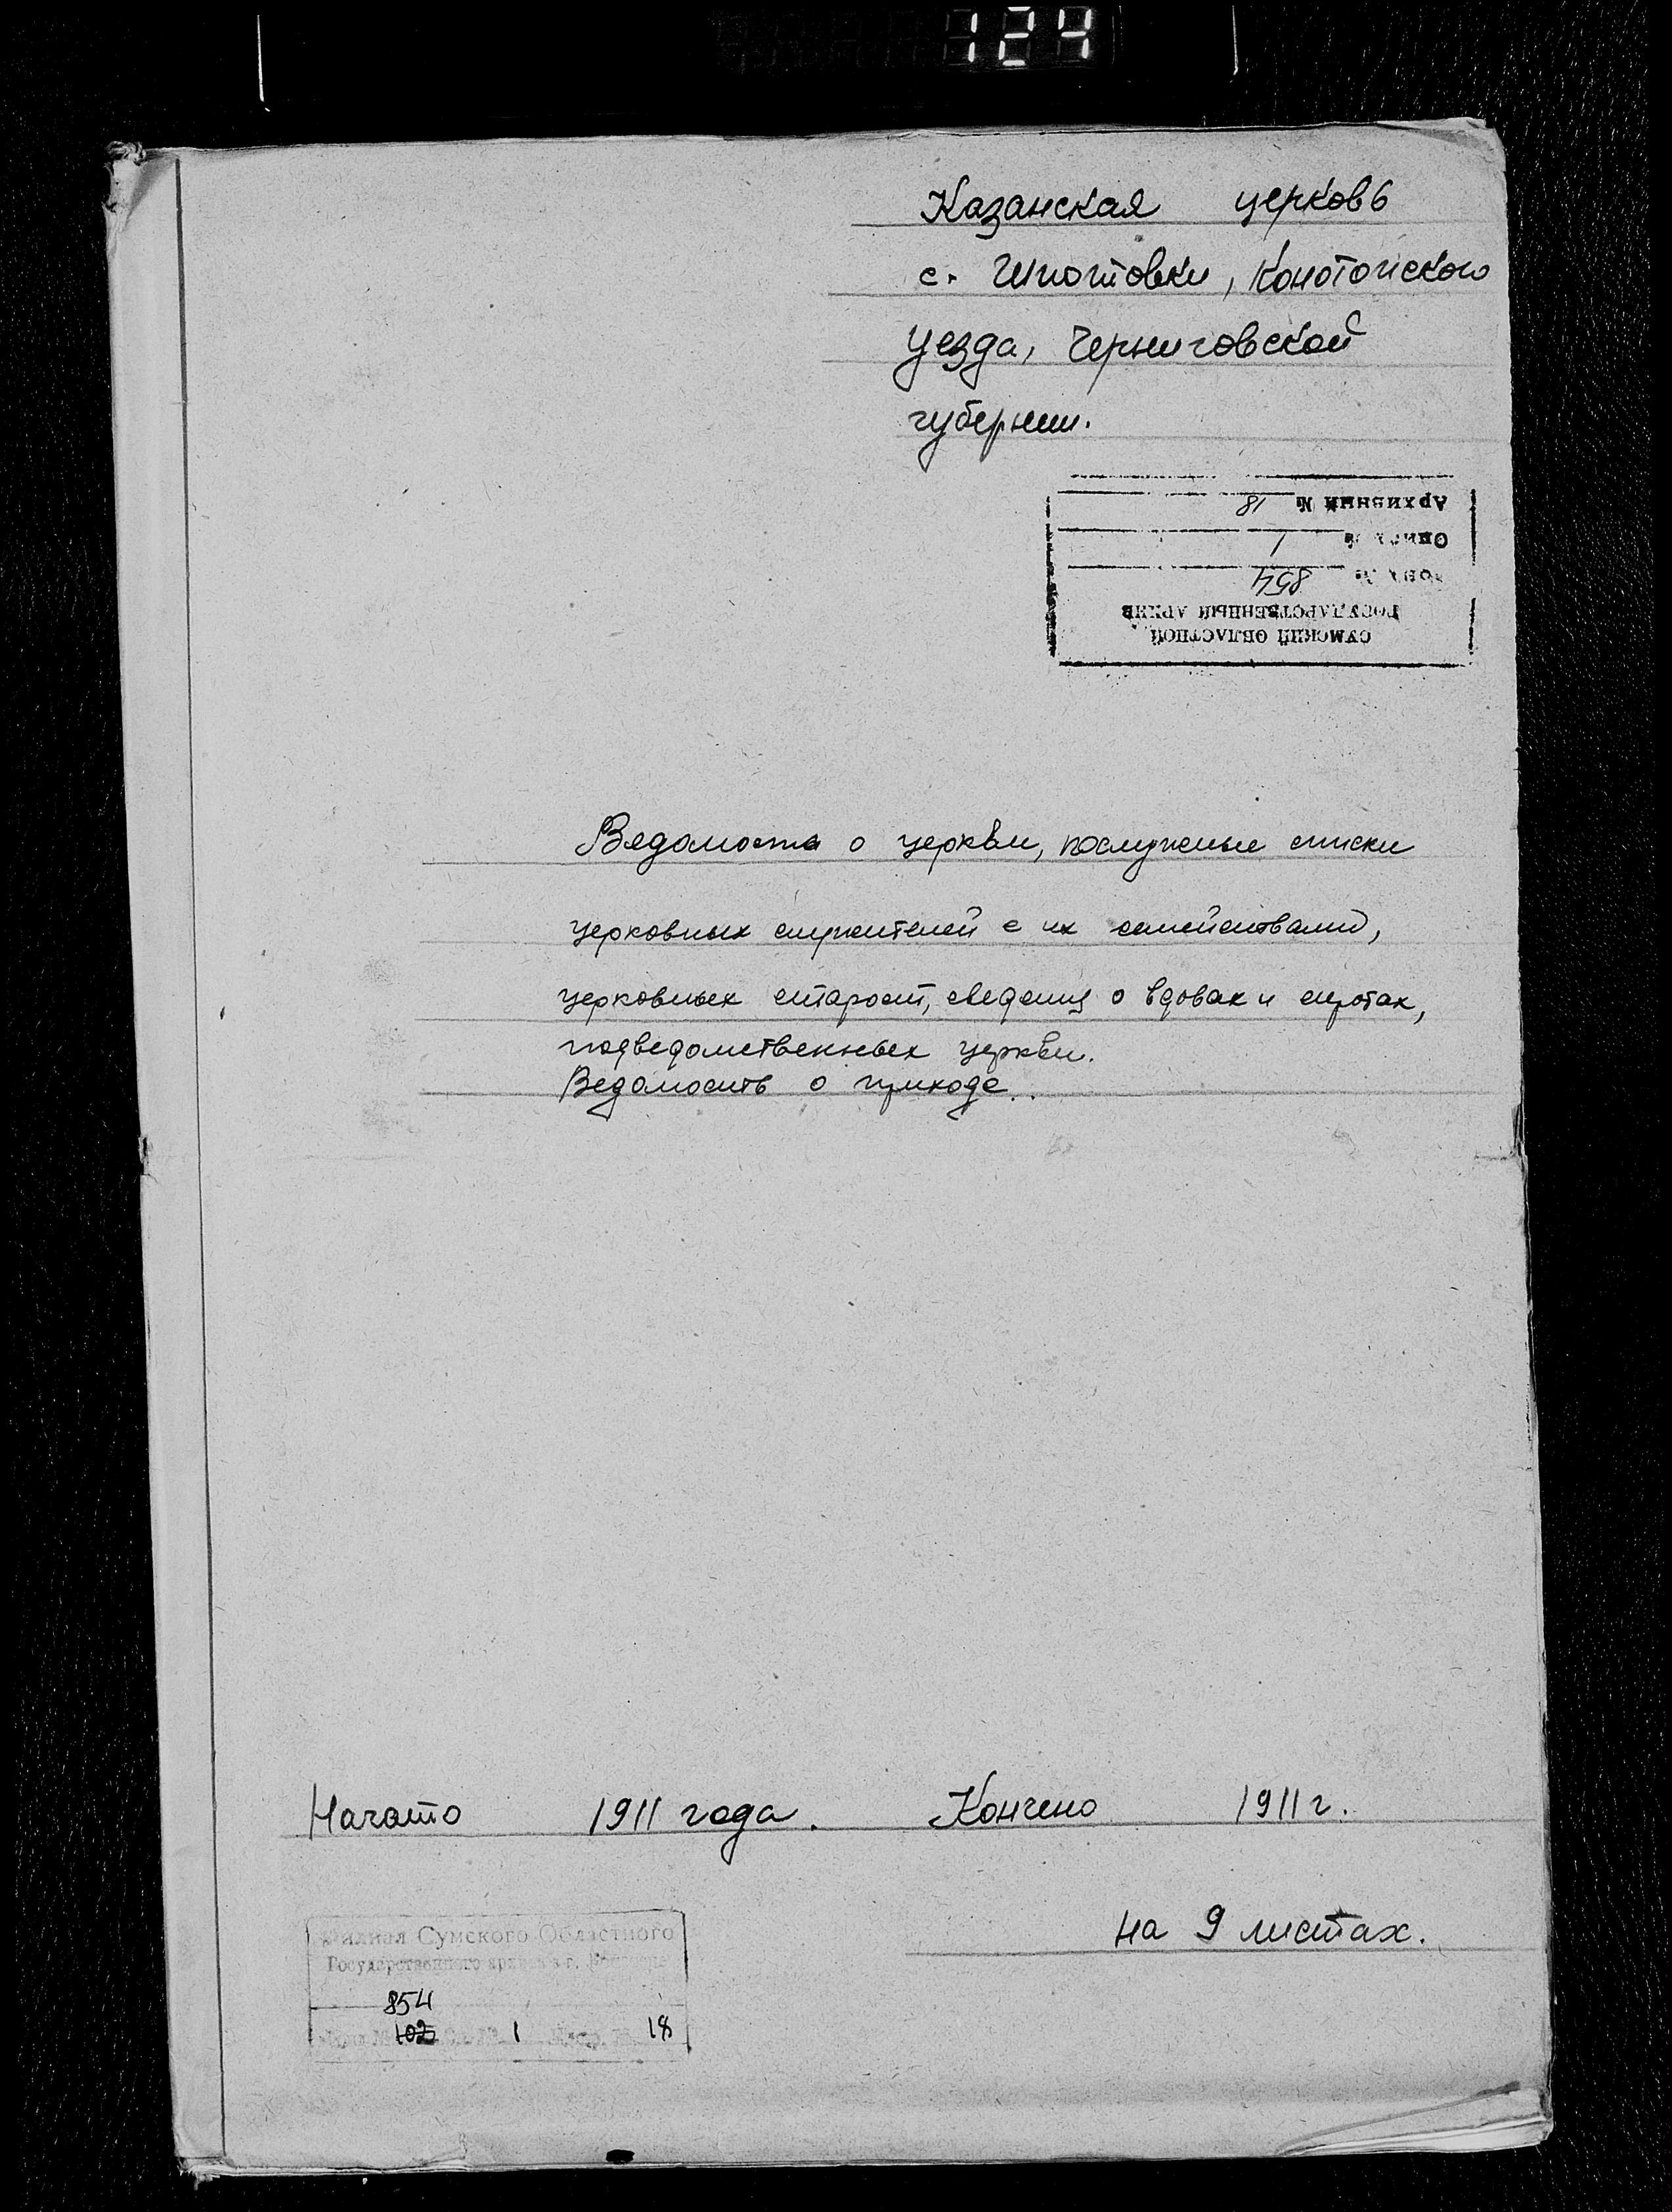 124
Казанская церковь
с. Шпотовки, Конотопского
уезда, Черниговской
губернии.
СУМСКИЙ ОБЛАСТНОЙ
ГОСУДАРСТВЕННЫЙ АРХИВ
Фонд № 854
Опись № 1
Архивный № 18
Ведомость о церкви, послужные списки
церковных служителей с их семействами,
церковных старост, сведения о вдовах и сиротах,
подведомственных церкви.
Ведомость о приходе.
Начато 1911 года. Кончено 1911 г.
на 9 листах.
Филиал Сумского Областного
Государственного архива в г.
854
102 1 18